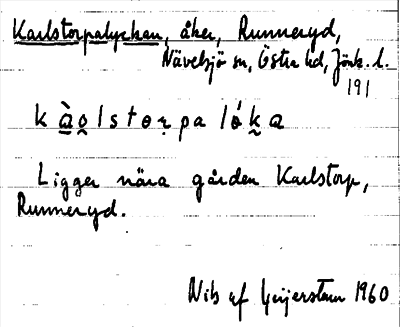 Karlstorpalyckan, åker, Runneryd,
Nävelsjö sn, Östra hd, Jönk. l.
191
k à̱o̯lstɵṛpa lɵ́k̯a
Ligger nära gården Karlstorp,
Runneryd.
Nils af Geijerstam 1960